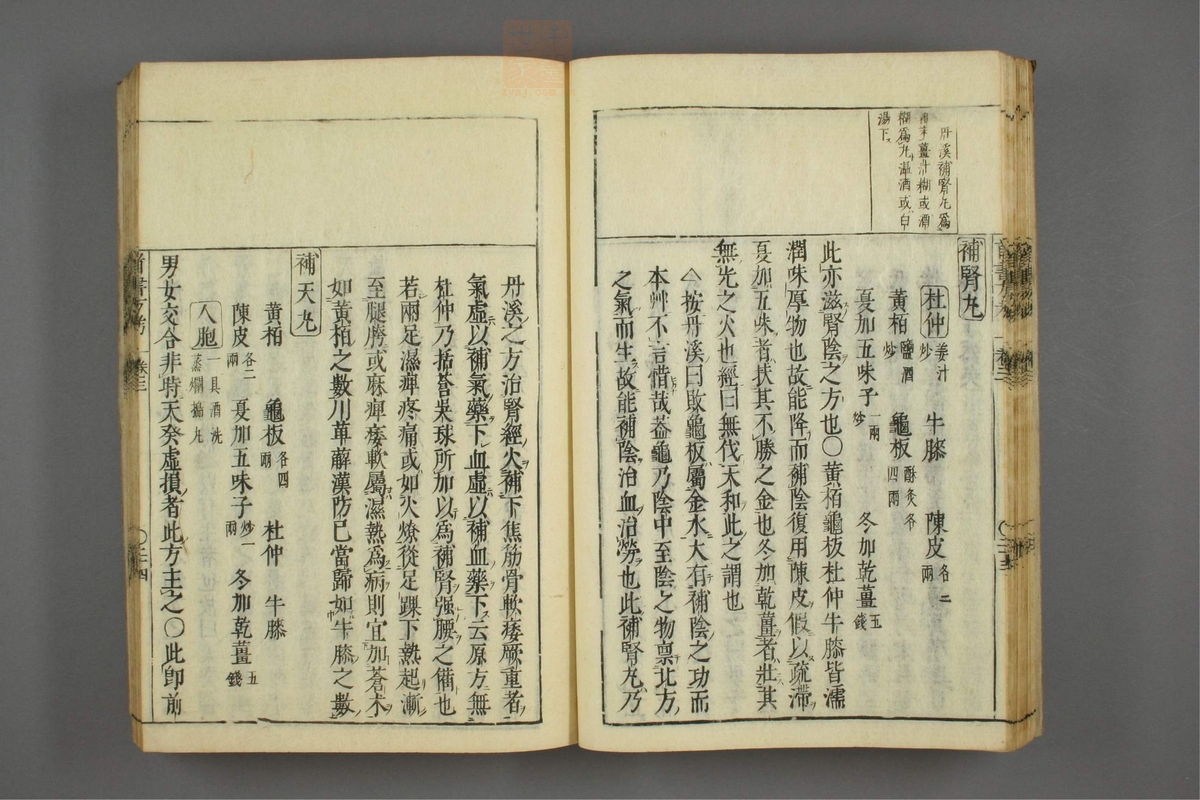 丹溪補腎丸為
末薑汁糊或酒
糊爲丸溫酒或白
湯下
補腎丸
杜仲 姜汁炒 牛膝 陳皮 各二兩
黃栢 鹽酒炒 龜板 酥炙各四兩
夏加五味子 一兩炒 冬加乾薑 五錢
此亦滋腎陰之方也○黃栢龜板杜仲牛膝皆濡
潤味厚物也故能降而補陰復用陳皮假以疏滯
夏加五味者扶其不勝之金也冬加乾薑者壯其
無光之火也經曰無伐天和此之謂也
按丹溪曰敗龜板屬金水大有補陰之功而
本艸不言惜哉葢龜乃陰中至陰之物禀北方
之氣而生故能補陰治血治勞也此補腎丸乃
丹溪之方治腎經火補下焦筋骨軟痿厥重者
氣虛以補氣藥下血虛以補血藥下云原方無
杜仲乃括蒼吳球所加以爲補腎强腰之備也
若兩足濕痺疼痛或如火燎從足踝下熱起漸
至腿胯或麻痺痿軟屬濕熱爲病則宜加蒼朮
如黃栢之數川萆薢漢防已當歸如牛膝之數
補天丸
黃栢 龜板 各四兩 杜仲 牛膝
陳皮 各二兩 夏加五味子 炒一兩 冬加乾薑 五錢
人胞 一具酒洗蒸爛搗丸
男女交合非時天癸虛損者此方主之○此卽前
卷三
二十四